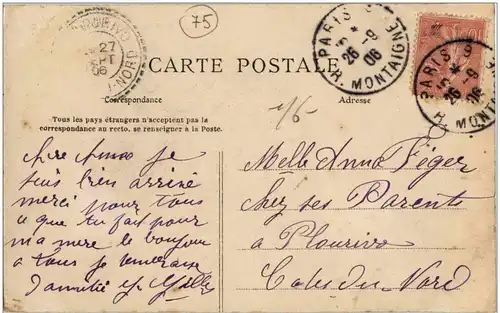 75
PLOURIVO
27
SEPT
06
C. DU NORD
PARIS
5 *
26-9
06
R. MONTAIGNE
PARIS
5 *
26-9
06
R. MONTAIGNE
CARTE POSTALE
Correspondance
Adresse
Tous les pays étrangers n'acceptent pas la
correspondance au recto, se renseigner à la Poste.
chère Anna je
suis bien arrivé
merci pour tous
ce que tu fait pour
ma mere le bonjour
a tous je
d'amitié
Melle Anna Péger
chez ses Parents
a Plourivo
Cotes du Nord